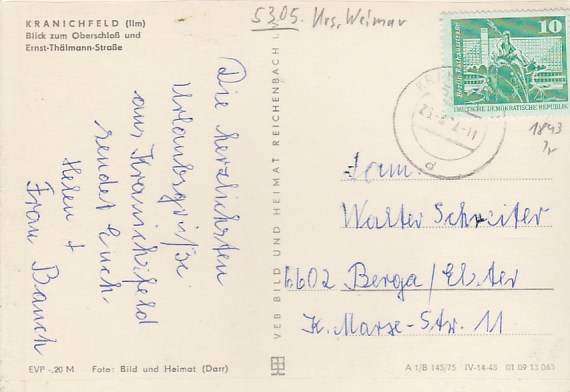 KRANICHFELD (Ilm)
Blick zum Oberschloß und
Ernst-Thälmann-Straße
5305. Krs. Weimar
Die herzlichsten
Urlaubsgrüße
aus Kranichfeld
sendet Euch
Helen +
Frau Bauch
EVP -,20 M Foto: Bild und Heimat (Darr)
VEB BILD UND HEIMAT REICHENBACH i.
10
Berlin, Rathausstraße
DEUTSCHE DEMOKRATISCHE REPUBLIK
1843
Fam.
Walter Schreiter
6602 Berga/Elster
K. Marx-Str. 11
A 1/B 145/75 IV-14-48 01 09 13 065